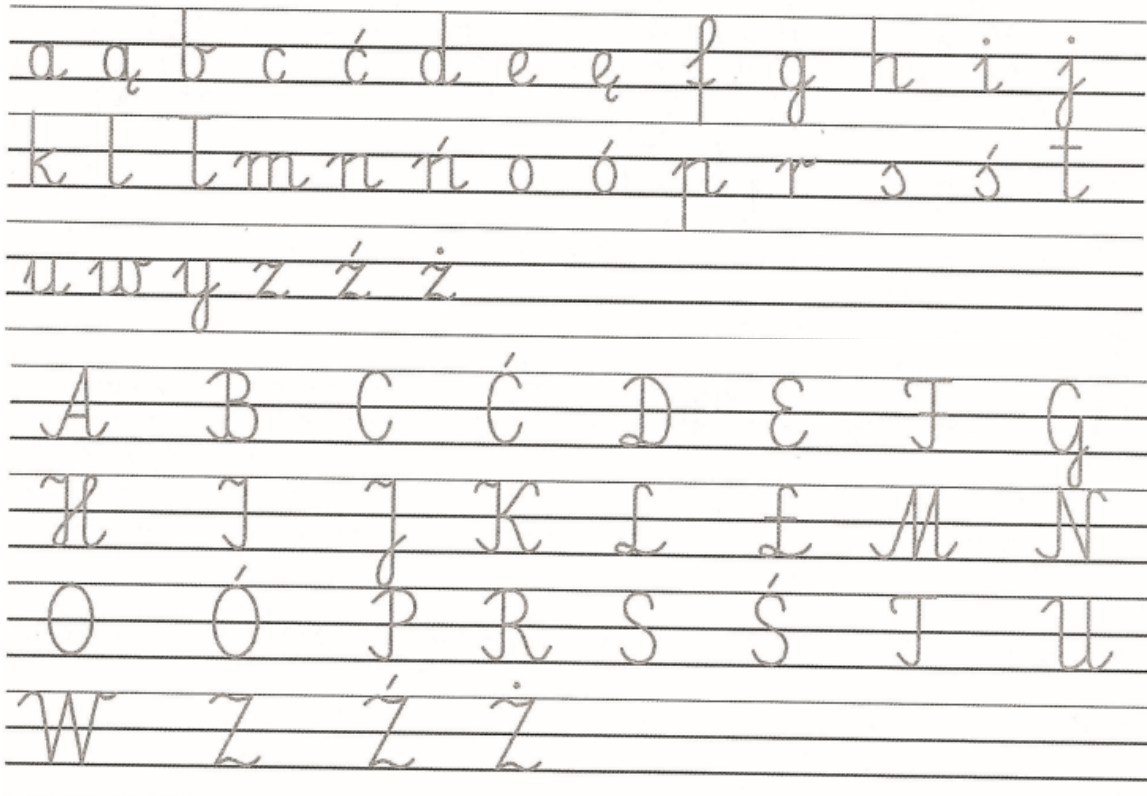 a ą b c ć d e ę f g h i j
k l ł m n ń o ó p r s ś t
u w y z ź ż
A B C Ć D E F G
H I J K L Ł M N
O Ó P R S Ś T U
W Z Ź Ż